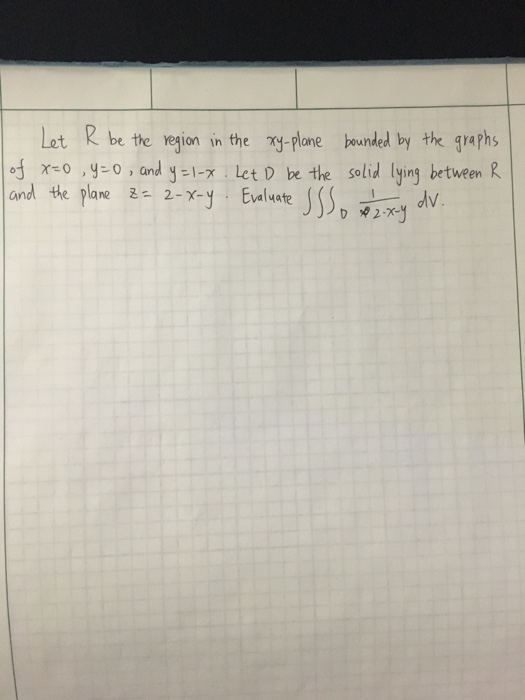 Let R be the region in the xy-plane bounded by the graphs
of x=0, y=0, and y=1-x. Let D be the solid lying between R
and the plane z = 2-x-y. Evaluate ∭_D 1/(2-x-y) dV.